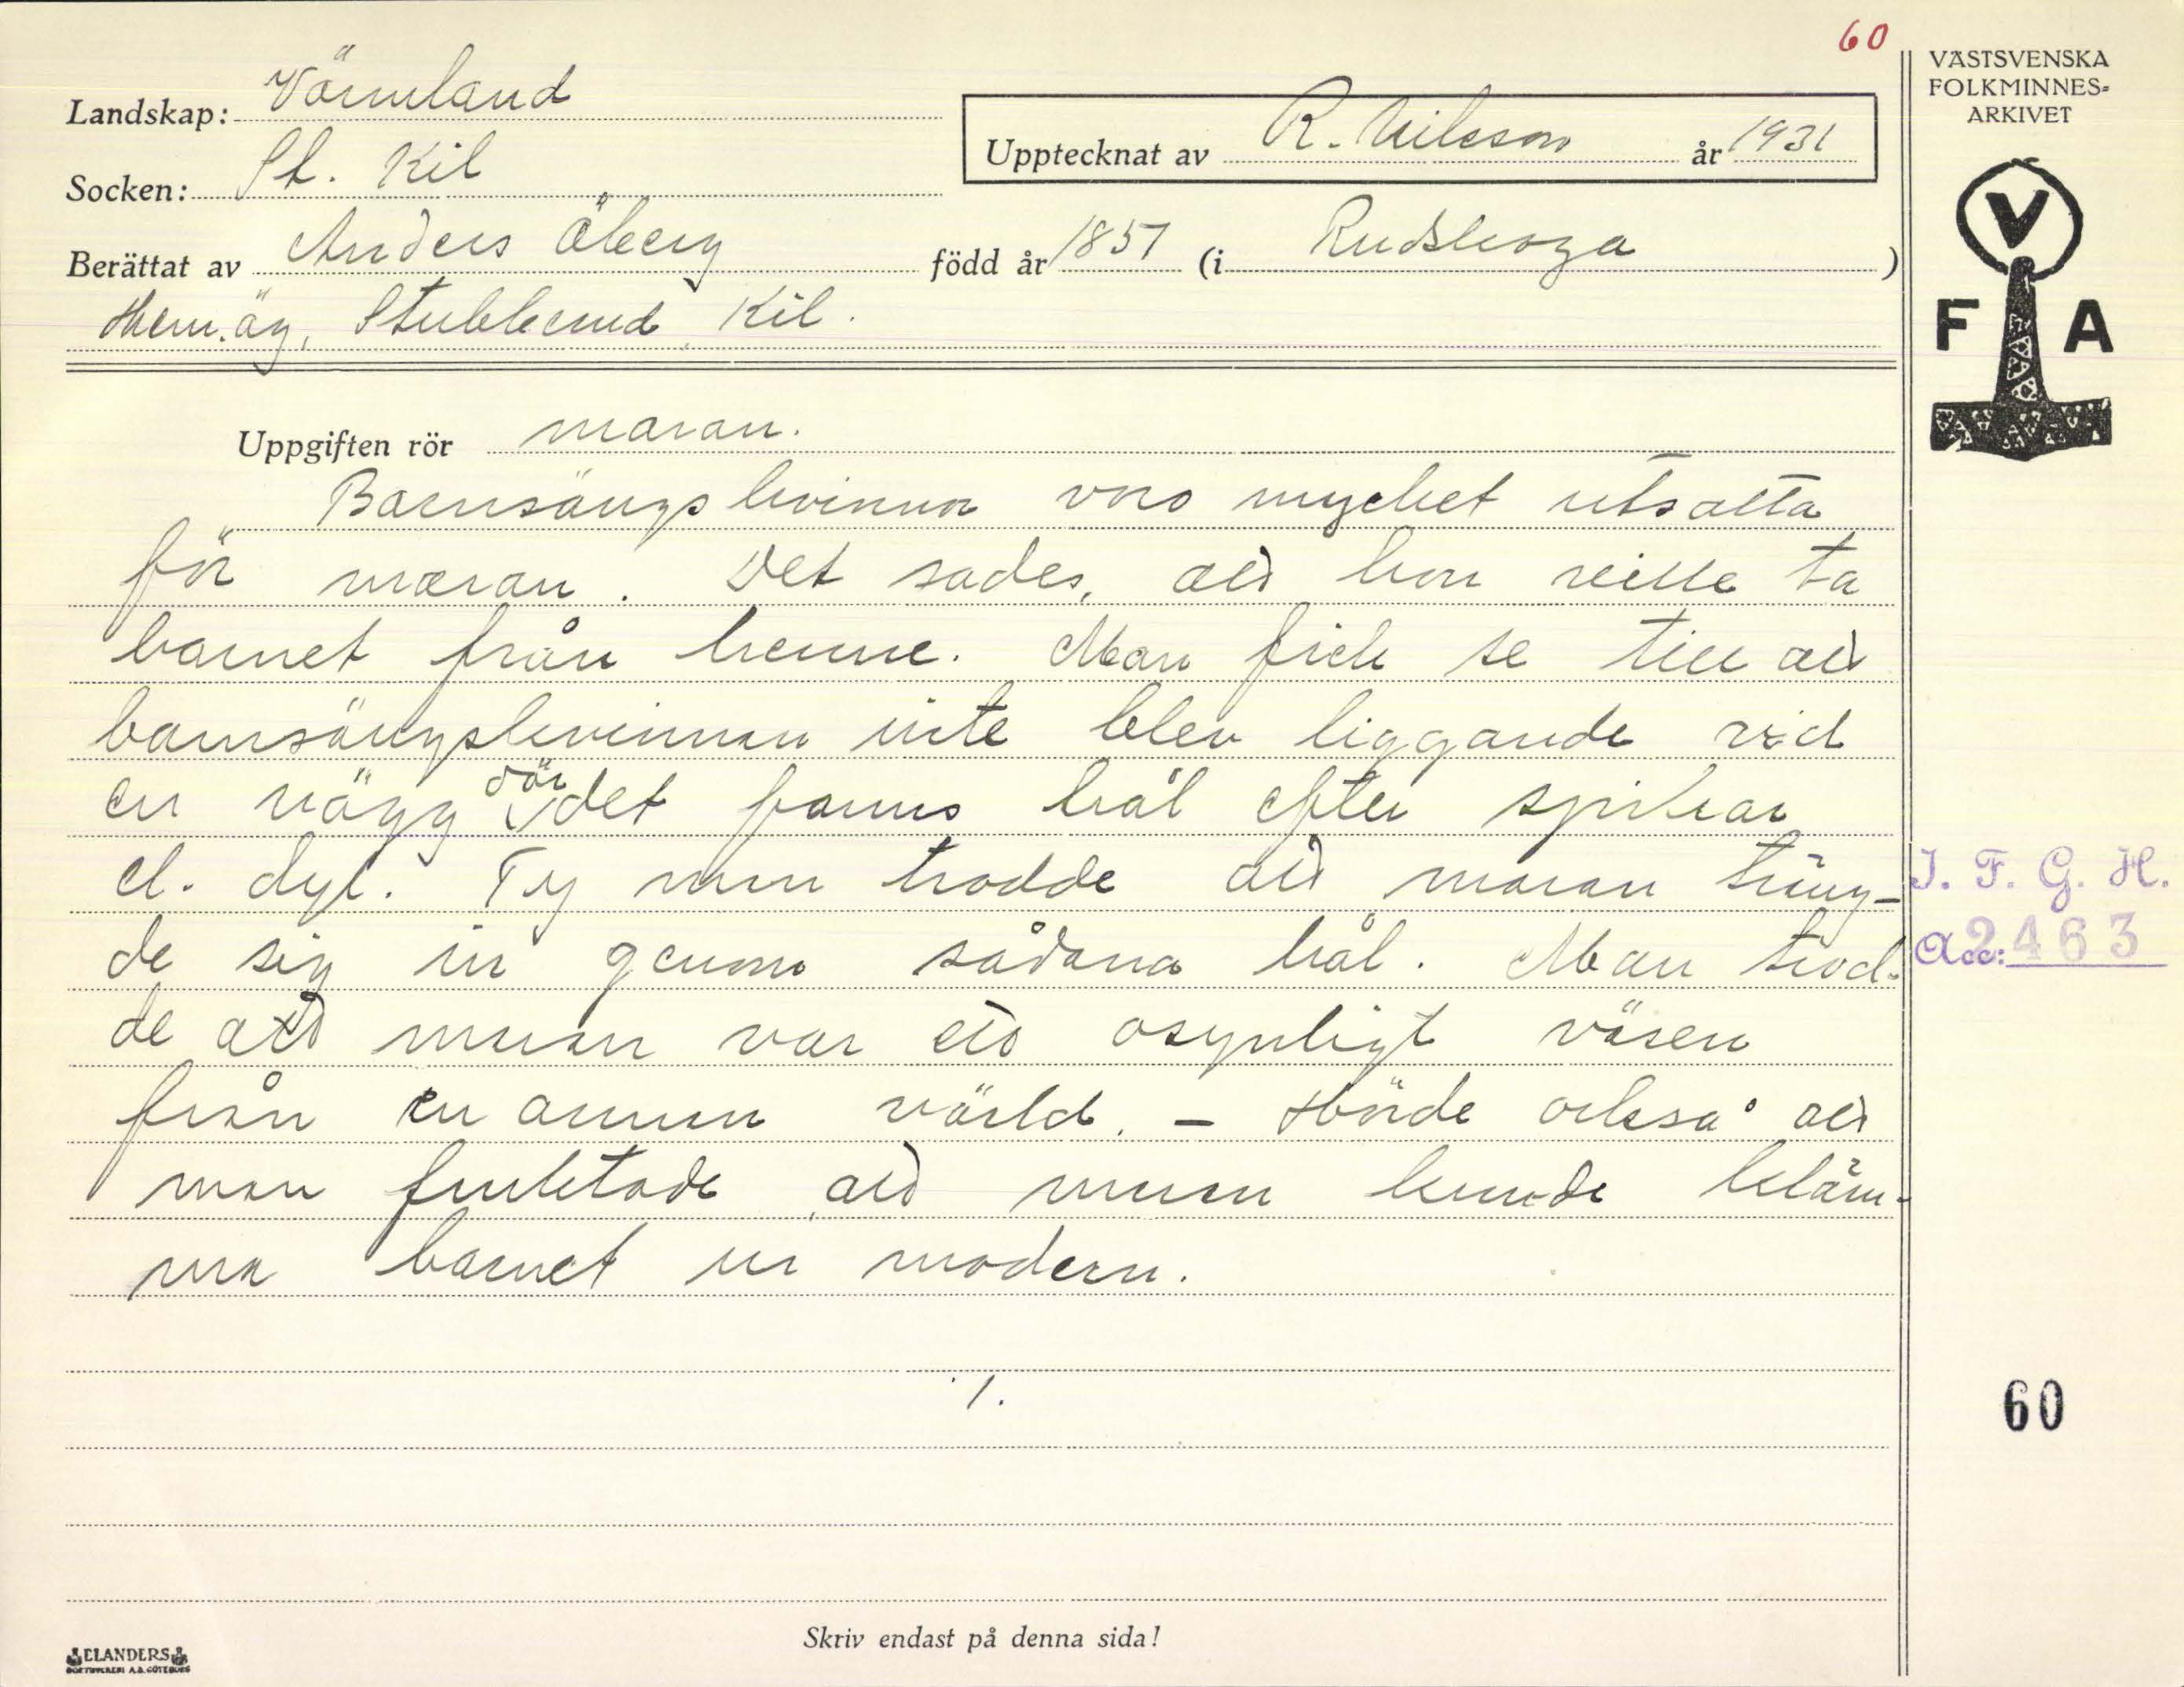 60
VÄSTSVENSKA
FOLKMINNES-
ARKIVET
Landskap: Värmland
Upptecknat av R. Nilsson år 1931
Socken: St. Kil
Berättat av Anders Öberg född år 1857 (i Rudskoga)
Hem.äg, Stubberud, Kil.
V
F A
Uppgiften rör maran.
Barnsängskvinnor voro mycket utsatta
för maran. Det sades, att hon ville ta
barnet från henne. Man fick se till att
barnsängskvinnan inte blev liggande vid
en vägg där det fanns hål efter spikar
el. dyl. Ty man trodde att maran träng-
de sig in genom sådana hål. Man trod-
de att maran var ett osynligt väsen
från en annan värld. - Hörde också att
man fruktade att maran kunde kläm-
ma barnet ur modern.
I. F. G. H.
Acc: 2463
1.
60
Skriv endast på denna sida!
ELANDERS
BOKTRYCKERI A.B. GÖTEBORG